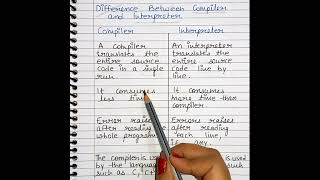 Difference Between Compiler
and Interpreter
Compiler Interpreter
A compiler An interpreter
translates the translates the
entire source entire source
code in a single code line by
run. line.
It consumes It consumes
less time more time than
compiler.
Error raised Errors raises
after reading the after reading
whole program each line, if
is any.
The compiler is used by
by the language such
such as C, C+